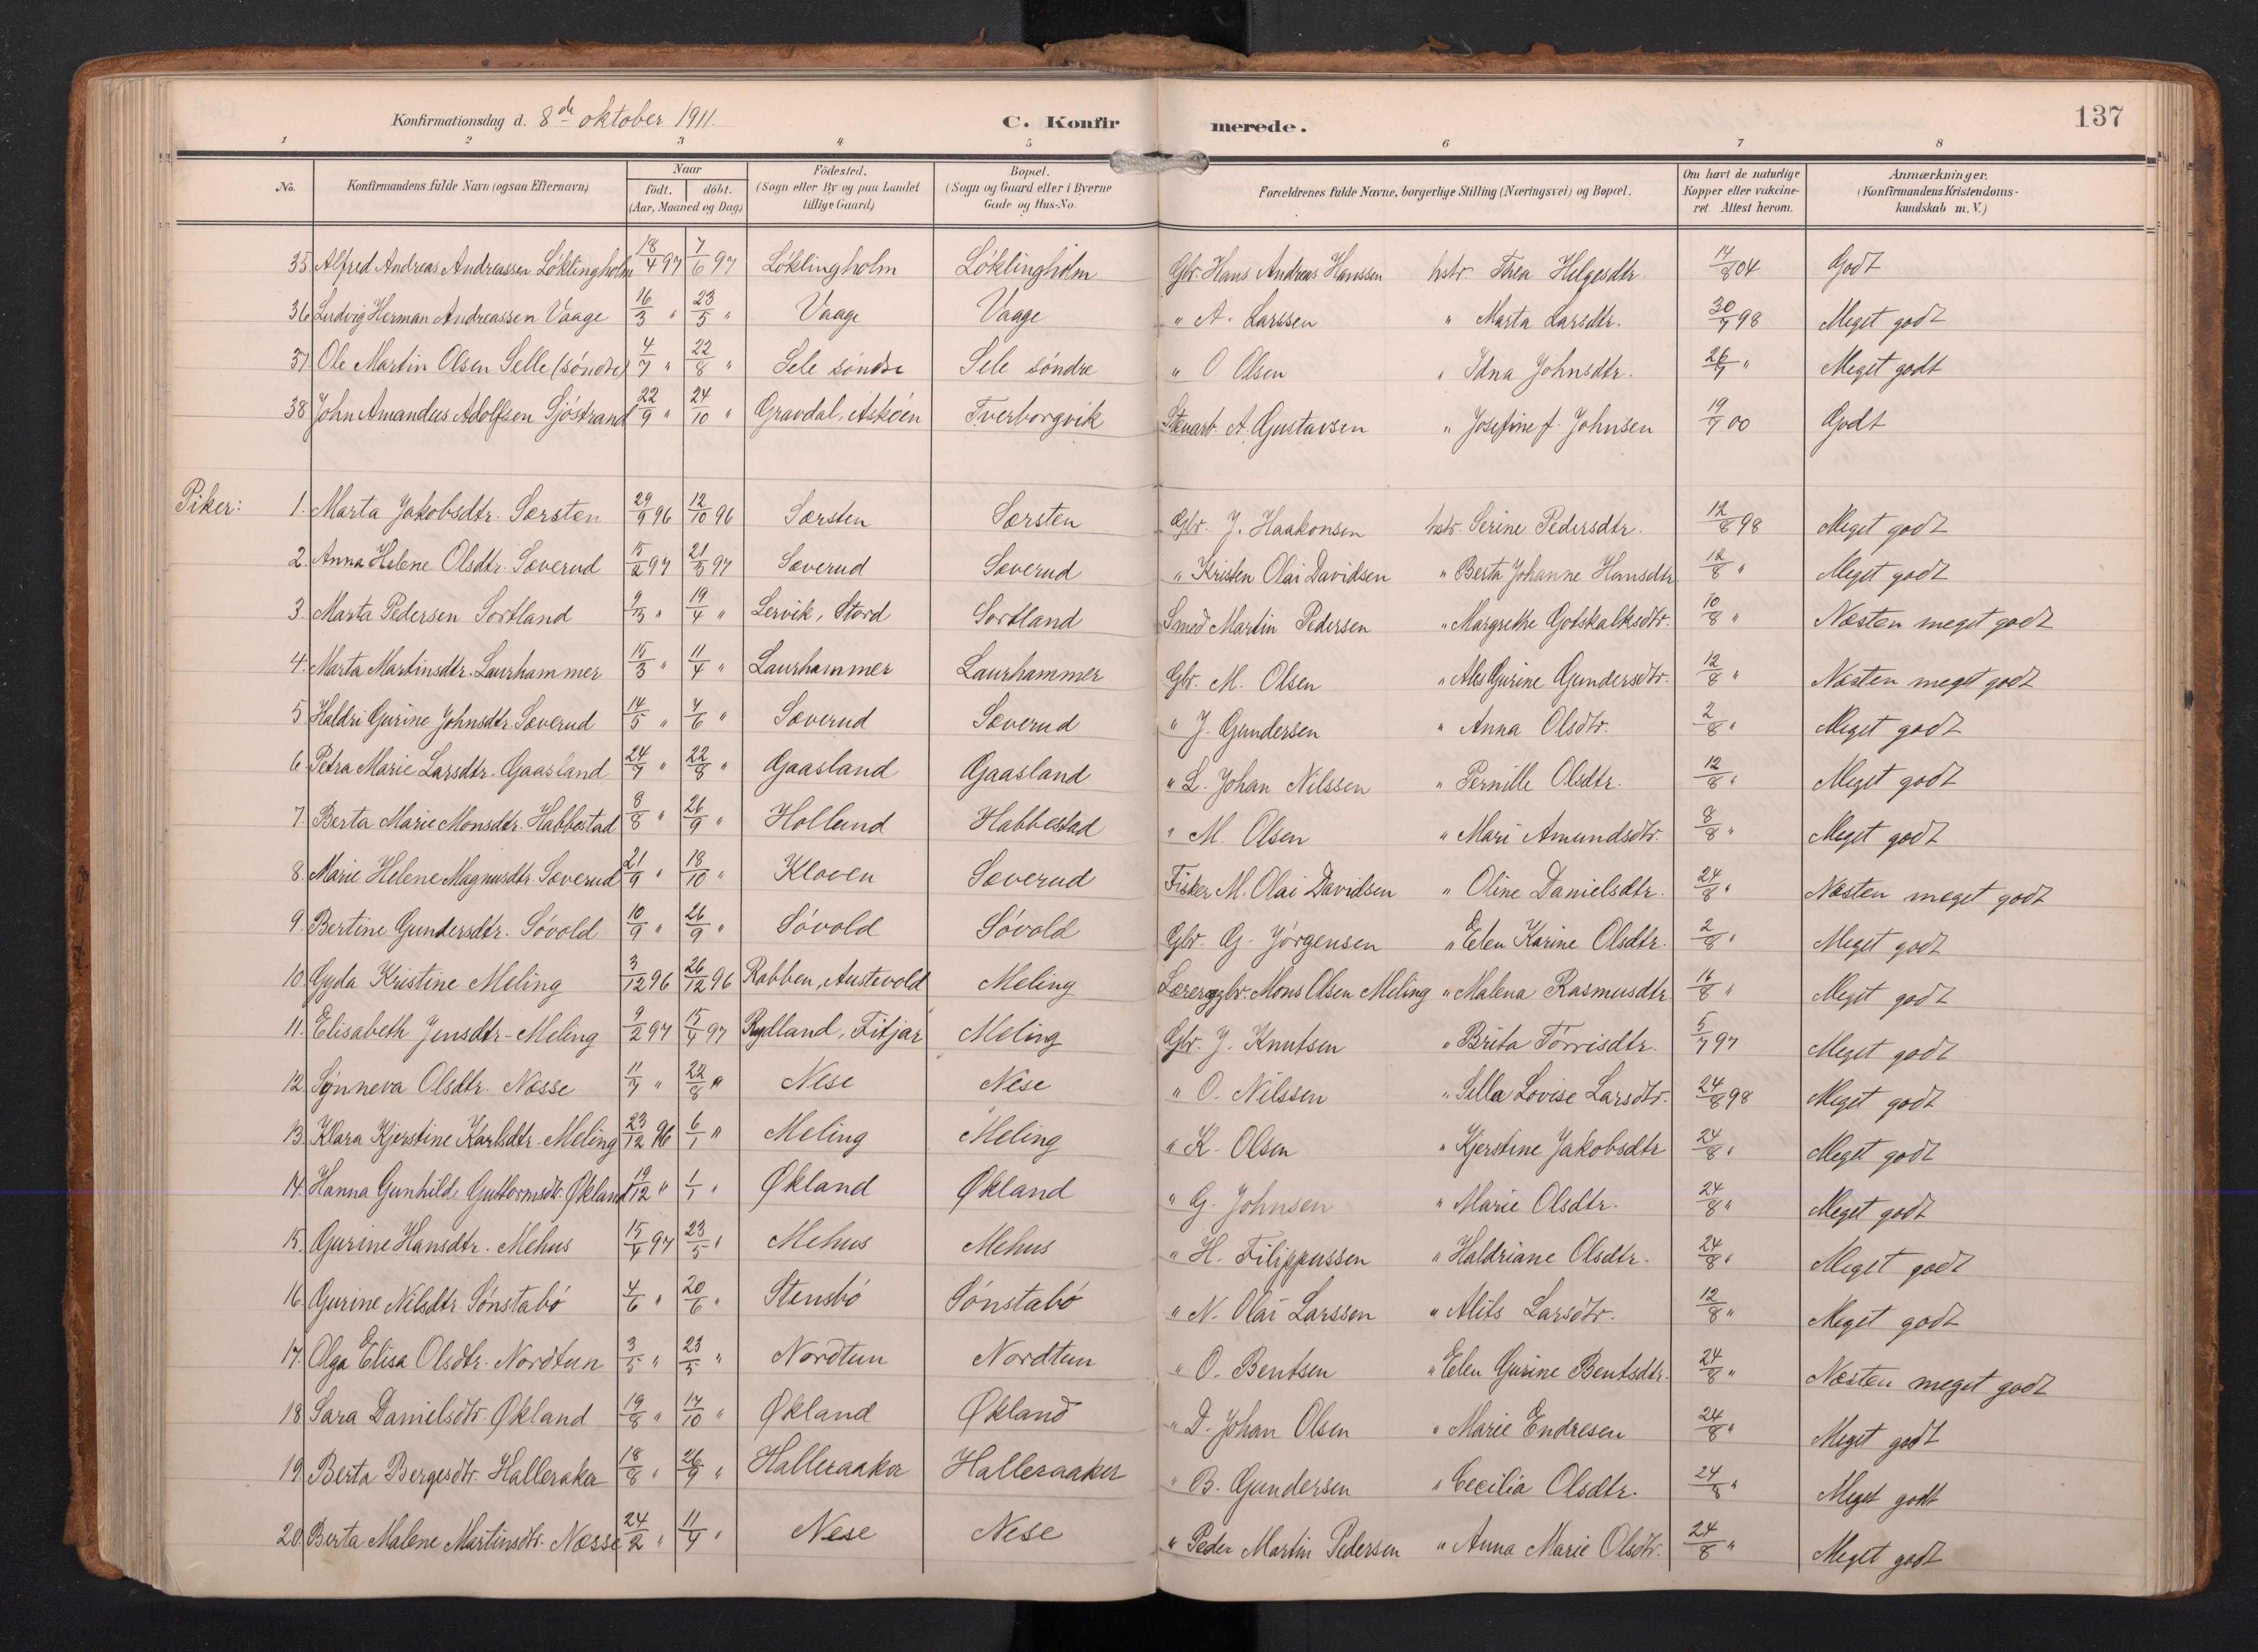 Konfirmationsdag d. 8de oktober 1911. C. Konfirmerede. 137
1 2 3 4 5 6 7 8
No. Konfirmandens fulde Navn (ogsaa Efternavn) Naar födt. döbt. (Aar, Maaned og Dag) Födested. (Sogn eller By og paa Landet tillige Gaard) Bopæl. (Sogn og Gaard eller i Byerne Gade og Hus-No. Forældrenes fulde Navne, borgerlige Stilling (Næringsvei) og Bopæl. Om havt de naturlige Kopper eller vakcineret. Attest herom. Anmærkninger. (Konfirmandens Kristendomskundskab m. V.)
35 Alfred Andreas Andreassen Löklingholm 18/4 97 7/6 97 Löklingholm Löklingholm Gbr. Hans Andreas Hanssen hstr. Thea Helgesdtr. 14/8 04 Godt
36 Ludvig Herman Andreassen Vaage 16/3 " 23/5 " Vaage Vaage " A. Larssen " Marta Larsdtr. 30/7 98 Meget godt
37 Ole Martin Olsen Selle (söndre) 4/7 " 22/8 " Sele söndre Sele söndre " O Olsen " Idna Johnsdtr. 26/7 " Meget godt
38 John Amandus Adolfsen Sjöstrand 22/9 " 24/10 " Gravdal, Askøen Tverborgvik Stenarb. A. Gustavsen " Josefine f. Johnsen 19/7 00 Godt
Piker: 1. Marta Jakobsdtr. Særsten 29/9 96 12/10 96 Særsten Særsten Gbr. J. Haakonsen hstr. Serine Pedersdtr. 12/8 98 Meget godt
2. Anna Helene Olsdtr. Sæverud 15/2 97 21/3 97 Sæverud Sæverud " Kristen Olai Davidsen " Berta Johanne Hansdtr. 12/8 " Meget godt
3. Marta Pedersen Sortland 9/3 " 19/4 " Lervik, Stord Sortland Smed Martin Pedersen " Margrethe Gotskalksdtr. 10/8 " Næsten meget godt
4. Marta Martinsdtr. Laurhammer 15/3 " 11/4 " Laurhammer Laurhammer Gbr. M. Olsen " Ales Gurine Gundersdtr. 12/8 " Næsten meget godt
5 Haldri Gurine Johnsdtr. Sæverud 14/5 " 7/6 " Sæverud Sæverud " J. Gundersen " Anna Olsdtr. 2/8 " Meget godt
6. Petra Marie Larsdtr. Gaasland 24/7 " 22/8 " Gaasland Gaasland " L. Johan Nilssen " Pernille Olsdtr. 12/8 " Meget godt
7. Berta Marie Monsdtr. Habbestad 8/8 " 26/9 " Holland Habbestad " M. Olsen " Mari Amundsdtr. 8/8 " Meget godt
8. Marie Helene Magnusdtr. Sæverud 21/9 " 18/10 " Kloven Sæverud Fisker M. Olai Davidsen " Oline Danielsdtr. 24/8 " Næsten meget godt
9. Bertine Gundersdtr. Sövold 10/9 " 26/9 " Sövold Sövold Gbr. G. Jörgensen " Elen Karine Olsdtr. 2/8 " Meget godt
10. Gyda Kristine Meling 3/12 96 26/12 96 Rabben, Austevold Meling Lærer og gbr. Mons Olsen Meling " Malena Rasmusdtr. 16/8 " Meget godt
11. Elisabeth Jensdtr. Meling 9/2 97 15/4 97 Rydland, Fitjar Meling Gbr. J. Knutsen " Brita Törrisdtr. 5/7 97 Meget godt
12. Synneva Olsdtr. Næsse 11/7 " 22/8 " Nese Nese " O. Nilssen " Sella Lovise Larsdtr. 24/8 98 Meget godt
13. Klara Kjerstine Karlsdtr. Meling 23/12 96 6/1 " Meling Meling " K. Olsen " Kjerstine Jakobsdtr 24/8 " Meget godt
14. Hanna Gunhilde Guttormsdtr. Økland 19/12 " 1/1 " Økland Økland " G. Johnsen " Marie Olsdtr. 24/8 " Meget godt
15. Gurine Hansdtr. Mehus 15/4 97 23/5 " Mehus Mehus " H. Filippussen " Haldriane Olsdtr. 24/8 " Meget godt
16. Gurine Nilsdtr. Sönstabö 4/6 " 20/6 " Stensbö Sönstabö " N. Olai Larssen " Alits Larsdtr. 12/8 " Meget godt
17. Olga Elisa Olsdtr. Nordtun 3/5 " 23/5 " Nordtun Nordtun " O. Bentsen " Elen Gurine Bentsdtr. 24/8 " Næsten meget godt
18 Sara Danielsdtr. Økland 19/8 " 17/10 " Økland Økland " D. Johan Olsen " Marie Endresen 24/8 " Meget godt
19. Berta Bergesdtr. Halleraker 18/8 " 26/9 " Halleraaker Halleraaker " B. Gundersen " Cecilia Olsdtr. 24/8 " Meget godt
20. Berta Malene Martinsdtr. Næsse 24/2 " 11/4 " Nese Nese " Peder Martin Pedersen " Anna Marie Olsdtr. 24/8 " Meget godt